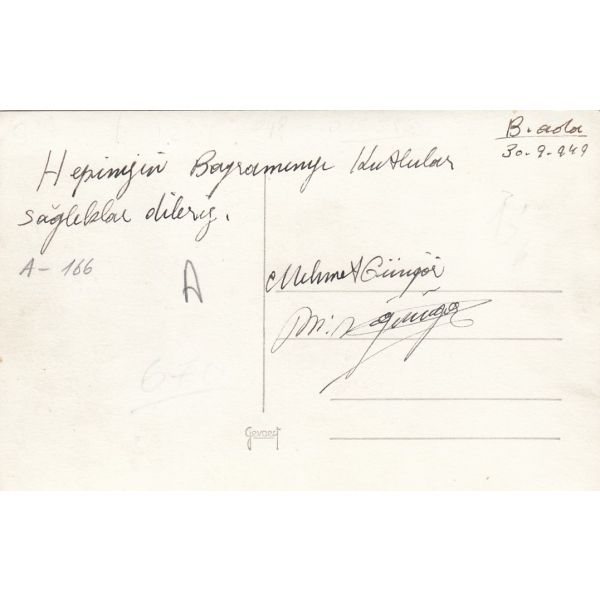 B. ada
30.9.949
Hepinizin Bayramınızı Kutlular
sağlıklar dileriz.
A-166
A
Mehmet Güngör
M. Güngör
Gevaert